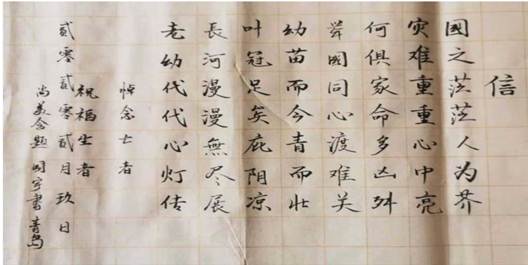 信
國之茫茫人为芥
灾难重重心中亮
何俱家命多凶舛
举國同心渡难关
幼苗而今青而壮
叶冠足矣庇阴凉
長河漫漫無尽展
老幼代代心灯传
悼念亡者
祝福生者
贰零贰零贰月玖日
念题 書 青岛